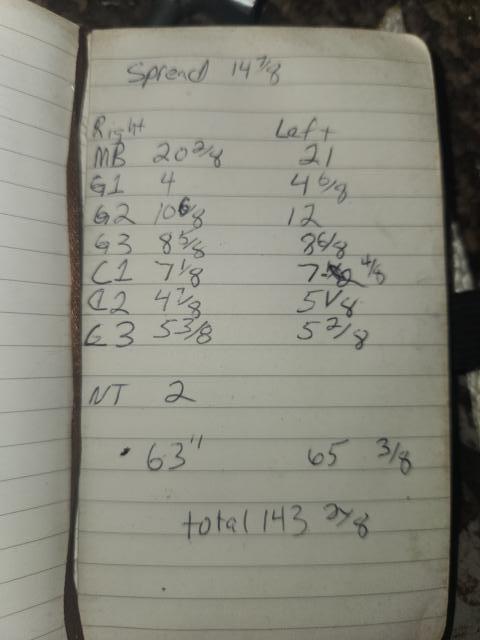 Spread 14 7/8
Right Left
MB 20 2/8 21
G1 4 4 6/8
G2 10 6/8 12
G3 8 5/8 8 6/8
C1 7 1/8 7 4/8
C2 4 7/8 5 1/8
C3 5 3/8 5 2/8
NT 2
63" 65 3/8
total 143 2/8